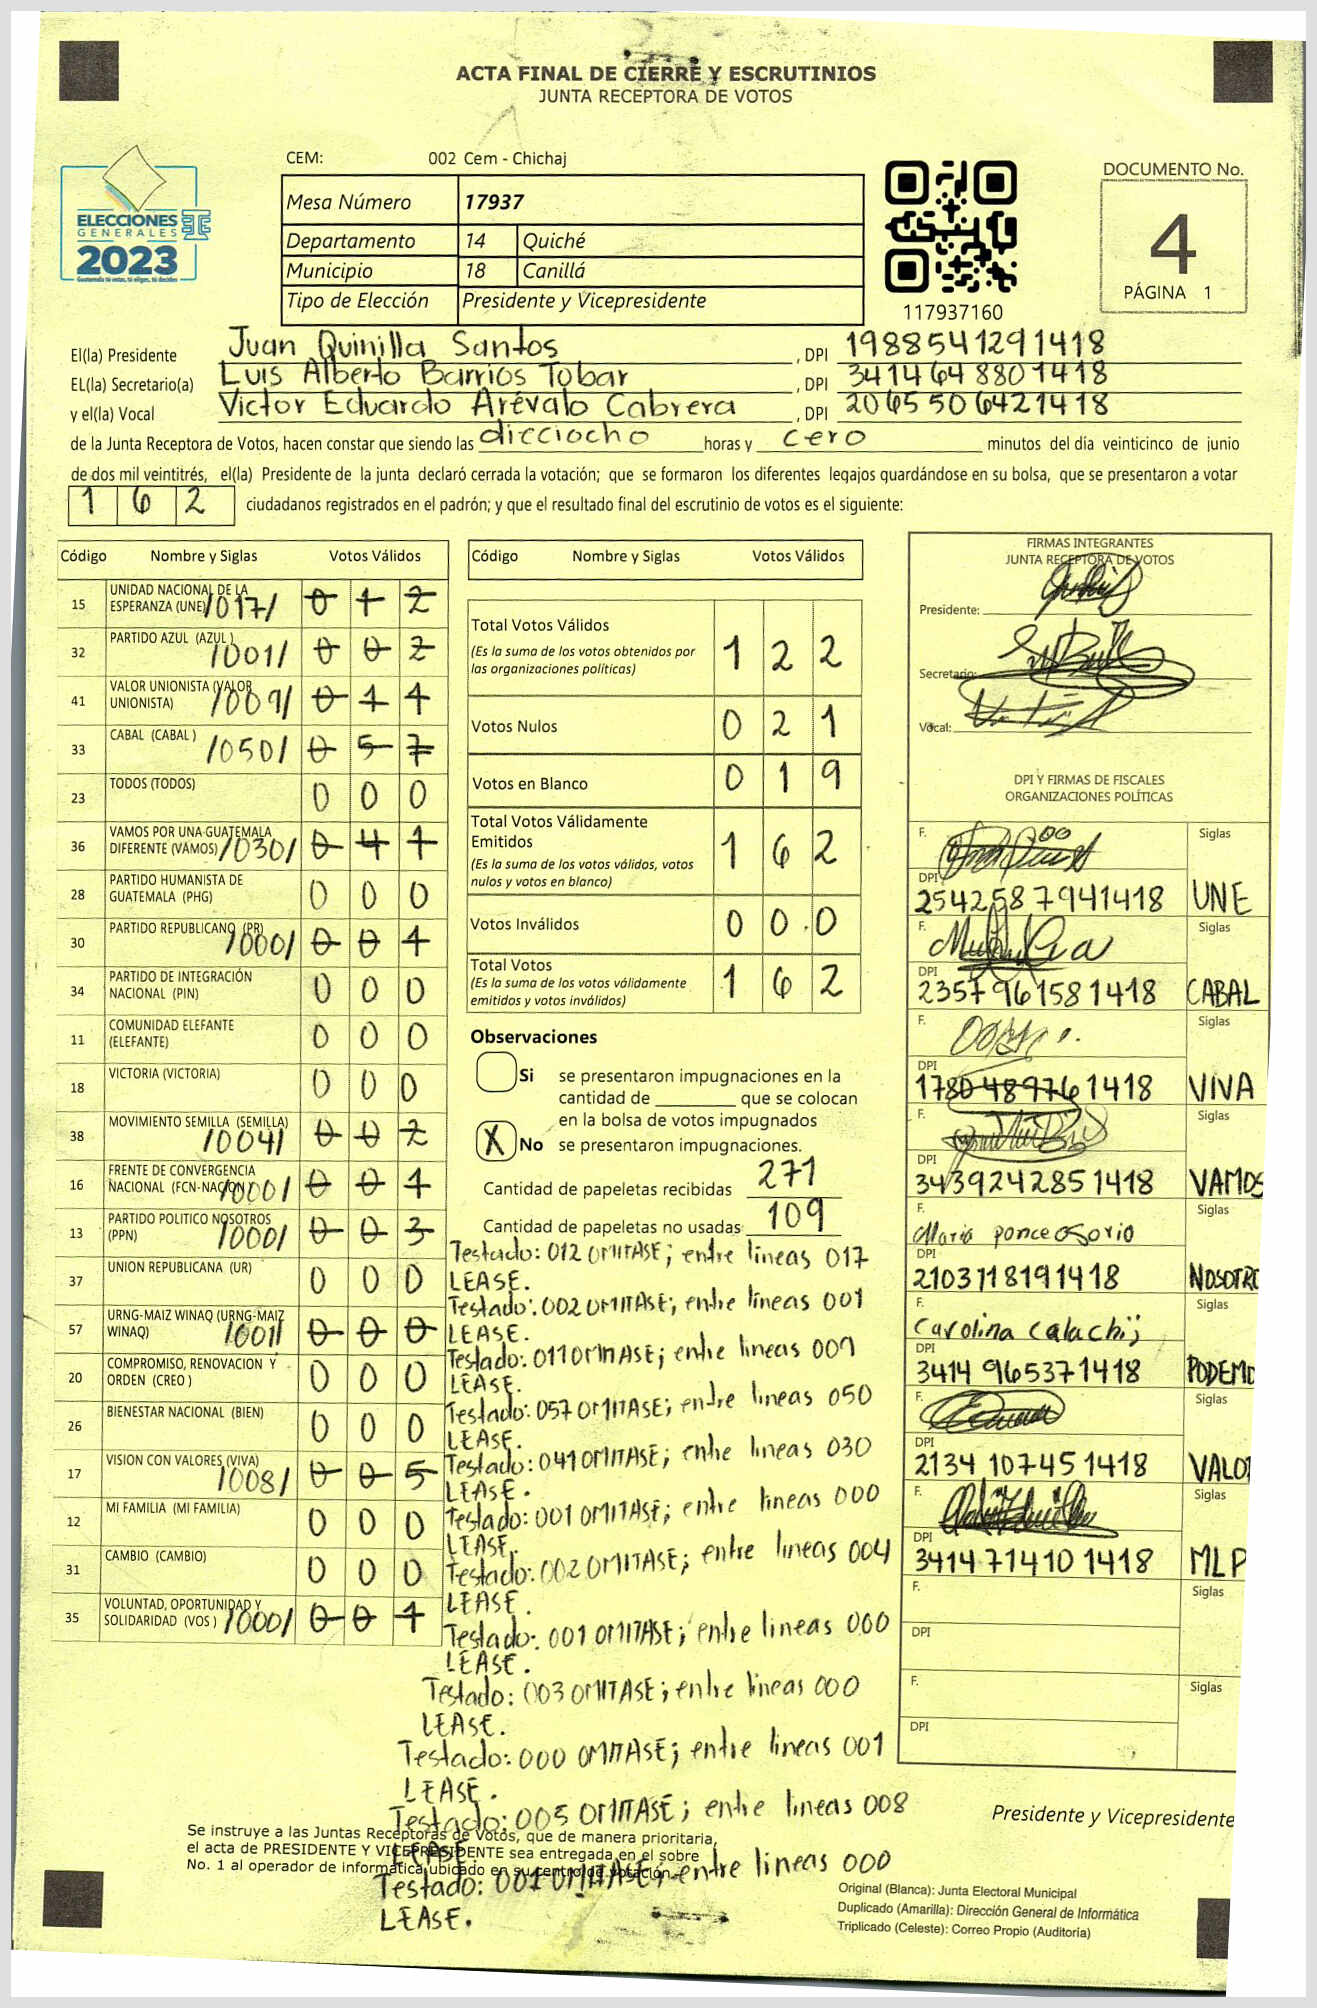 ACTA FINAL DE CIERRE Y ESCRUTINIOS
JUNTA RECEPTORA DE VOTOS
CEM: 002 Cem - Chichaj
ELECCIONES
GENERALES
2023
Guatemala tú votas, tú eliges, tú decides
Mesa Número 17937
Departamento 14 Quiché
Municipio 18 Canillá
Tipo de Elección Presidente y Vicepresidente
117937160
DOCUMENTO No.
4
PÁGINA 1
El(la) Presidente Juan Quinilla Santos , DPI 1988541291418
EL(la) Secretario(a) Luis Alberto Barrios Tobar , DPI 3414648801418
y el(la) Vocal Victor Eduardo Arévalo Cabrera , DPI 2065506421418
de la Junta Receptora de Votos, hacen constar que siendo las dieciocho horas y cero minutos del día veinticinco de junio
de dos mil veintitrés, el(la) Presidente de la junta declaró cerrada la votación; que se formaron los diferentes legajos guardándose en su bolsa, que se presentaron a votar
162 ciudadanos registrados en el padrón; y que el resultado final del escrutinio de votos es el siguiente:
Código Nombre y Siglas Votos Válidos
15 UNIDAD NACIONAL DE LA ESPERANZA (UNE) /017/ 0 1 2
32 PARTIDO AZUL (AZUL ) /001/ 0 0 2
41 VALOR UNIONISTA (VALOR UNIONISTA) /009/ 0 1 1
33 CABAL (CABAL ) /050/ 0 5 7
23 TODOS (TODOS) 0 0 0
36 VAMOS POR UNA GUATEMALA DIFERENTE (VAMOS) /030/ 0 4 1
28 PARTIDO HUMANISTA DE GUATEMALA (PHG) 0 0 0
30 PARTIDO REPUBLICANO (PR) /000/ 0 0 1
34 PARTIDO DE INTEGRACIÓN NACIONAL (PIN) 0 0 0
11 COMUNIDAD ELEFANTE (ELEFANTE) 0 0 0
18 VICTORIA (VICTORIA) 0 0 0
38 MOVIMIENTO SEMILLA (SEMILLA) /004/ 0 0 2
16 FRENTE DE CONVERGENCIA NACIONAL (FCN-NACION) /000/ 0 0 1
13 PARTIDO POLITICO NOSOTROS (PPN) /000/ 0 0 3
37 UNION REPUBLICANA (UR) 0 0 0
57 URNG-MAIZ WINAQ (URNG-MAIZ WINAQ) /001/ 0 0 0
20 COMPROMISO, RENOVACION Y ORDEN (CREO ) 0 0 0
26 BIENESTAR NACIONAL (BIEN) 0 0 0
17 VISION CON VALORES (VIVA) /008/ 0 0 5
12 MI FAMILIA (MI FAMILIA) 0 0 0
31 CAMBIO (CAMBIO) 0 0 0
35 VOLUNTAD, OPORTUNIDAD Y SOLIDARIDAD (VOS ) /000/ 0 0 1
Código Nombre y Siglas Votos Válidos
Total Votos Válidos 1 2 2
(Es la suma de los votos obtenidos por
las organizaciones políticas)
Votos Nulos 0 2 1
Votos en Blanco 0 1 9
Total Votos Válidamente
Emitidos 1 6 2
(Es la suma de los votos válidos, votos
nulos y votos en blanco)
Votos Inválidos 0 0 0
Total Votos 1 6 2
(Es la suma de los votos válidamente
emitidos y votos inválidos)
Observaciones
Si se presentaron impugnaciones en la
cantidad de ________ que se colocan
en la bolsa de votos impugnados
X No se presentaron impugnaciones.
Cantidad de papeletas recibidas 271
Cantidad de papeletas no usadas: 109
Testado: 012 OMITASE; entre lineas 017
LEASE.
Testado: 002 OMITASE; entre lineas 001
LEASE.
Testado: 011 OMITASE; entre lineas 009
LEASE.
Testado: 057 OMITASE; entre lineas 050
LEASE.
Testado: 041 OMITASE; entre lineas 030
LEASE.
Testado: 001 OMITASE; entre lineas 000
LEASE.
Testado: 002 OMITASE; entre lineas 004
LEASE.
Testado: 001 OMITASE; entre lineas 000
LEASE.
Testado: 003 OMITASE; entre lineas 000
LEASE.
Testado: 000 OMITASE; entre lineas 001
LEASE.
Testado: 005 OMITASE; entre lineas 008
LEASE.
Testado: 001 OMITASE; entre lineas 000
LEASE.
FIRMAS INTEGRANTES
JUNTA RECEPTORA DE VOTOS
Presidente:
Secretario:
Vocal:
DPI Y FIRMAS DE FISCALES
ORGANIZACIONES POLÍTICAS
F. Siglas
DPI 2542587941418 UNE
F. Siglas
DPI 2357961581418 CABAL
F. Siglas
DPI 1780489761418 VIVA
F. Siglas
DPI 3439242851418 VAMOS
F. Maria ponce Osorio Siglas
DPI 2103718191418 NOSOTRO
F. Carolina Calachij Siglas
DPI 3414965371418 PODEMO
F. Siglas
DPI 2134107451418 VALOR
F. Siglas
DPI 3414714101418 MLP
F. Siglas
DPI
F. Siglas
DPI
Presidente y Vicepresidente
Se instruye a las Juntas Receptoras de Votos, que de manera prioritaria,
el acta de PRESIDENTE Y VICEPRESIDENTE sea entregada en el sobre
No. 1 al operador de informática ubicado en su centro de votación.
Original (Blanca): Junta Electoral Municipal
Duplicado (Amarilla): Dirección General de Informática
Triplicado (Celeste): Correo Propio (Auditoría)